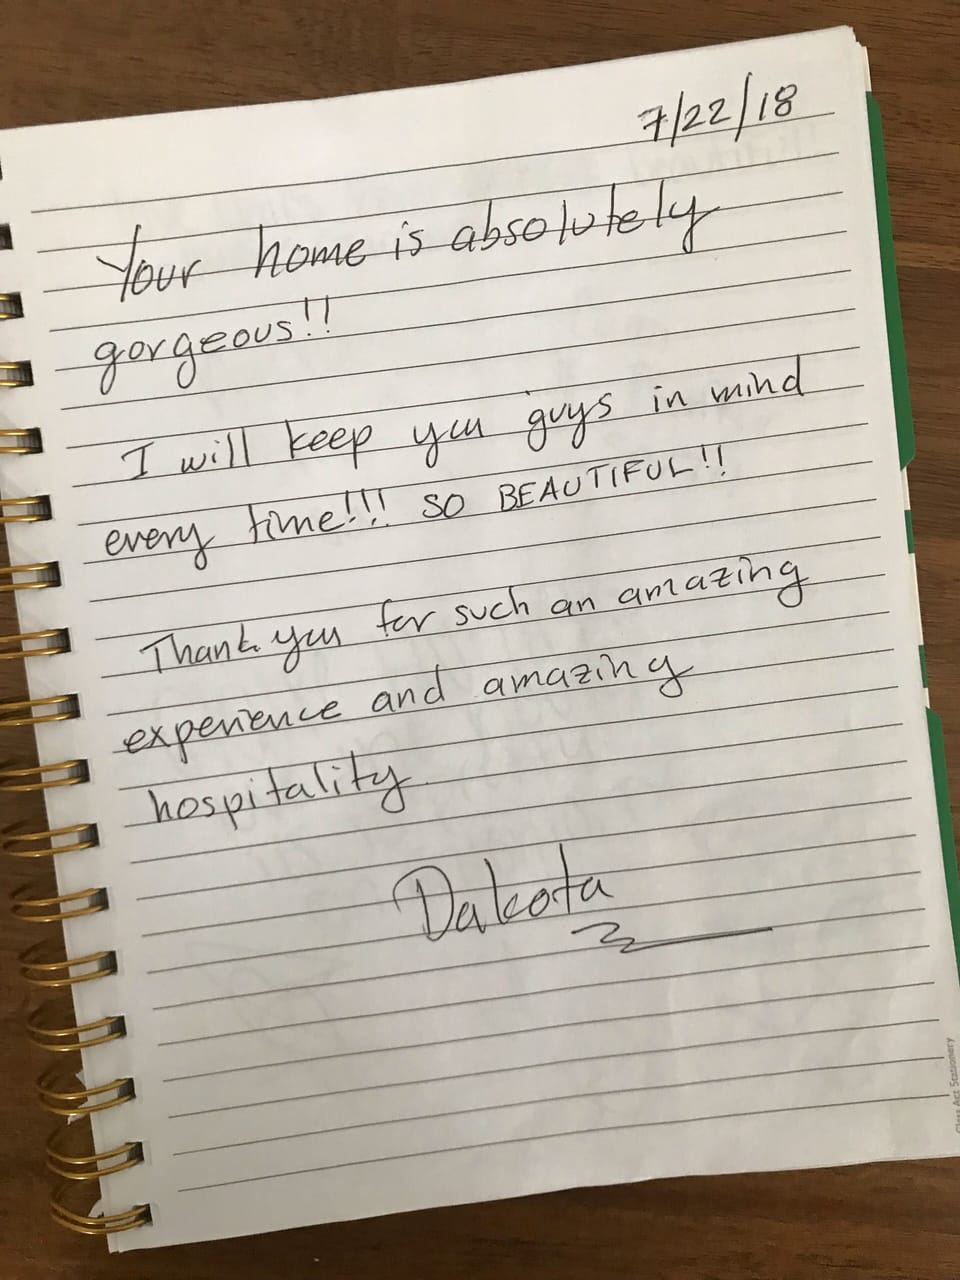 7/22/18
Your home is absolutely
gorgeous!!
I will keep you guys in mind
every time!!! SO BEAUTIFUL!!
Thank you for such an amazing
experience and amazing
hospitality
Dakota
Class Act Stationery